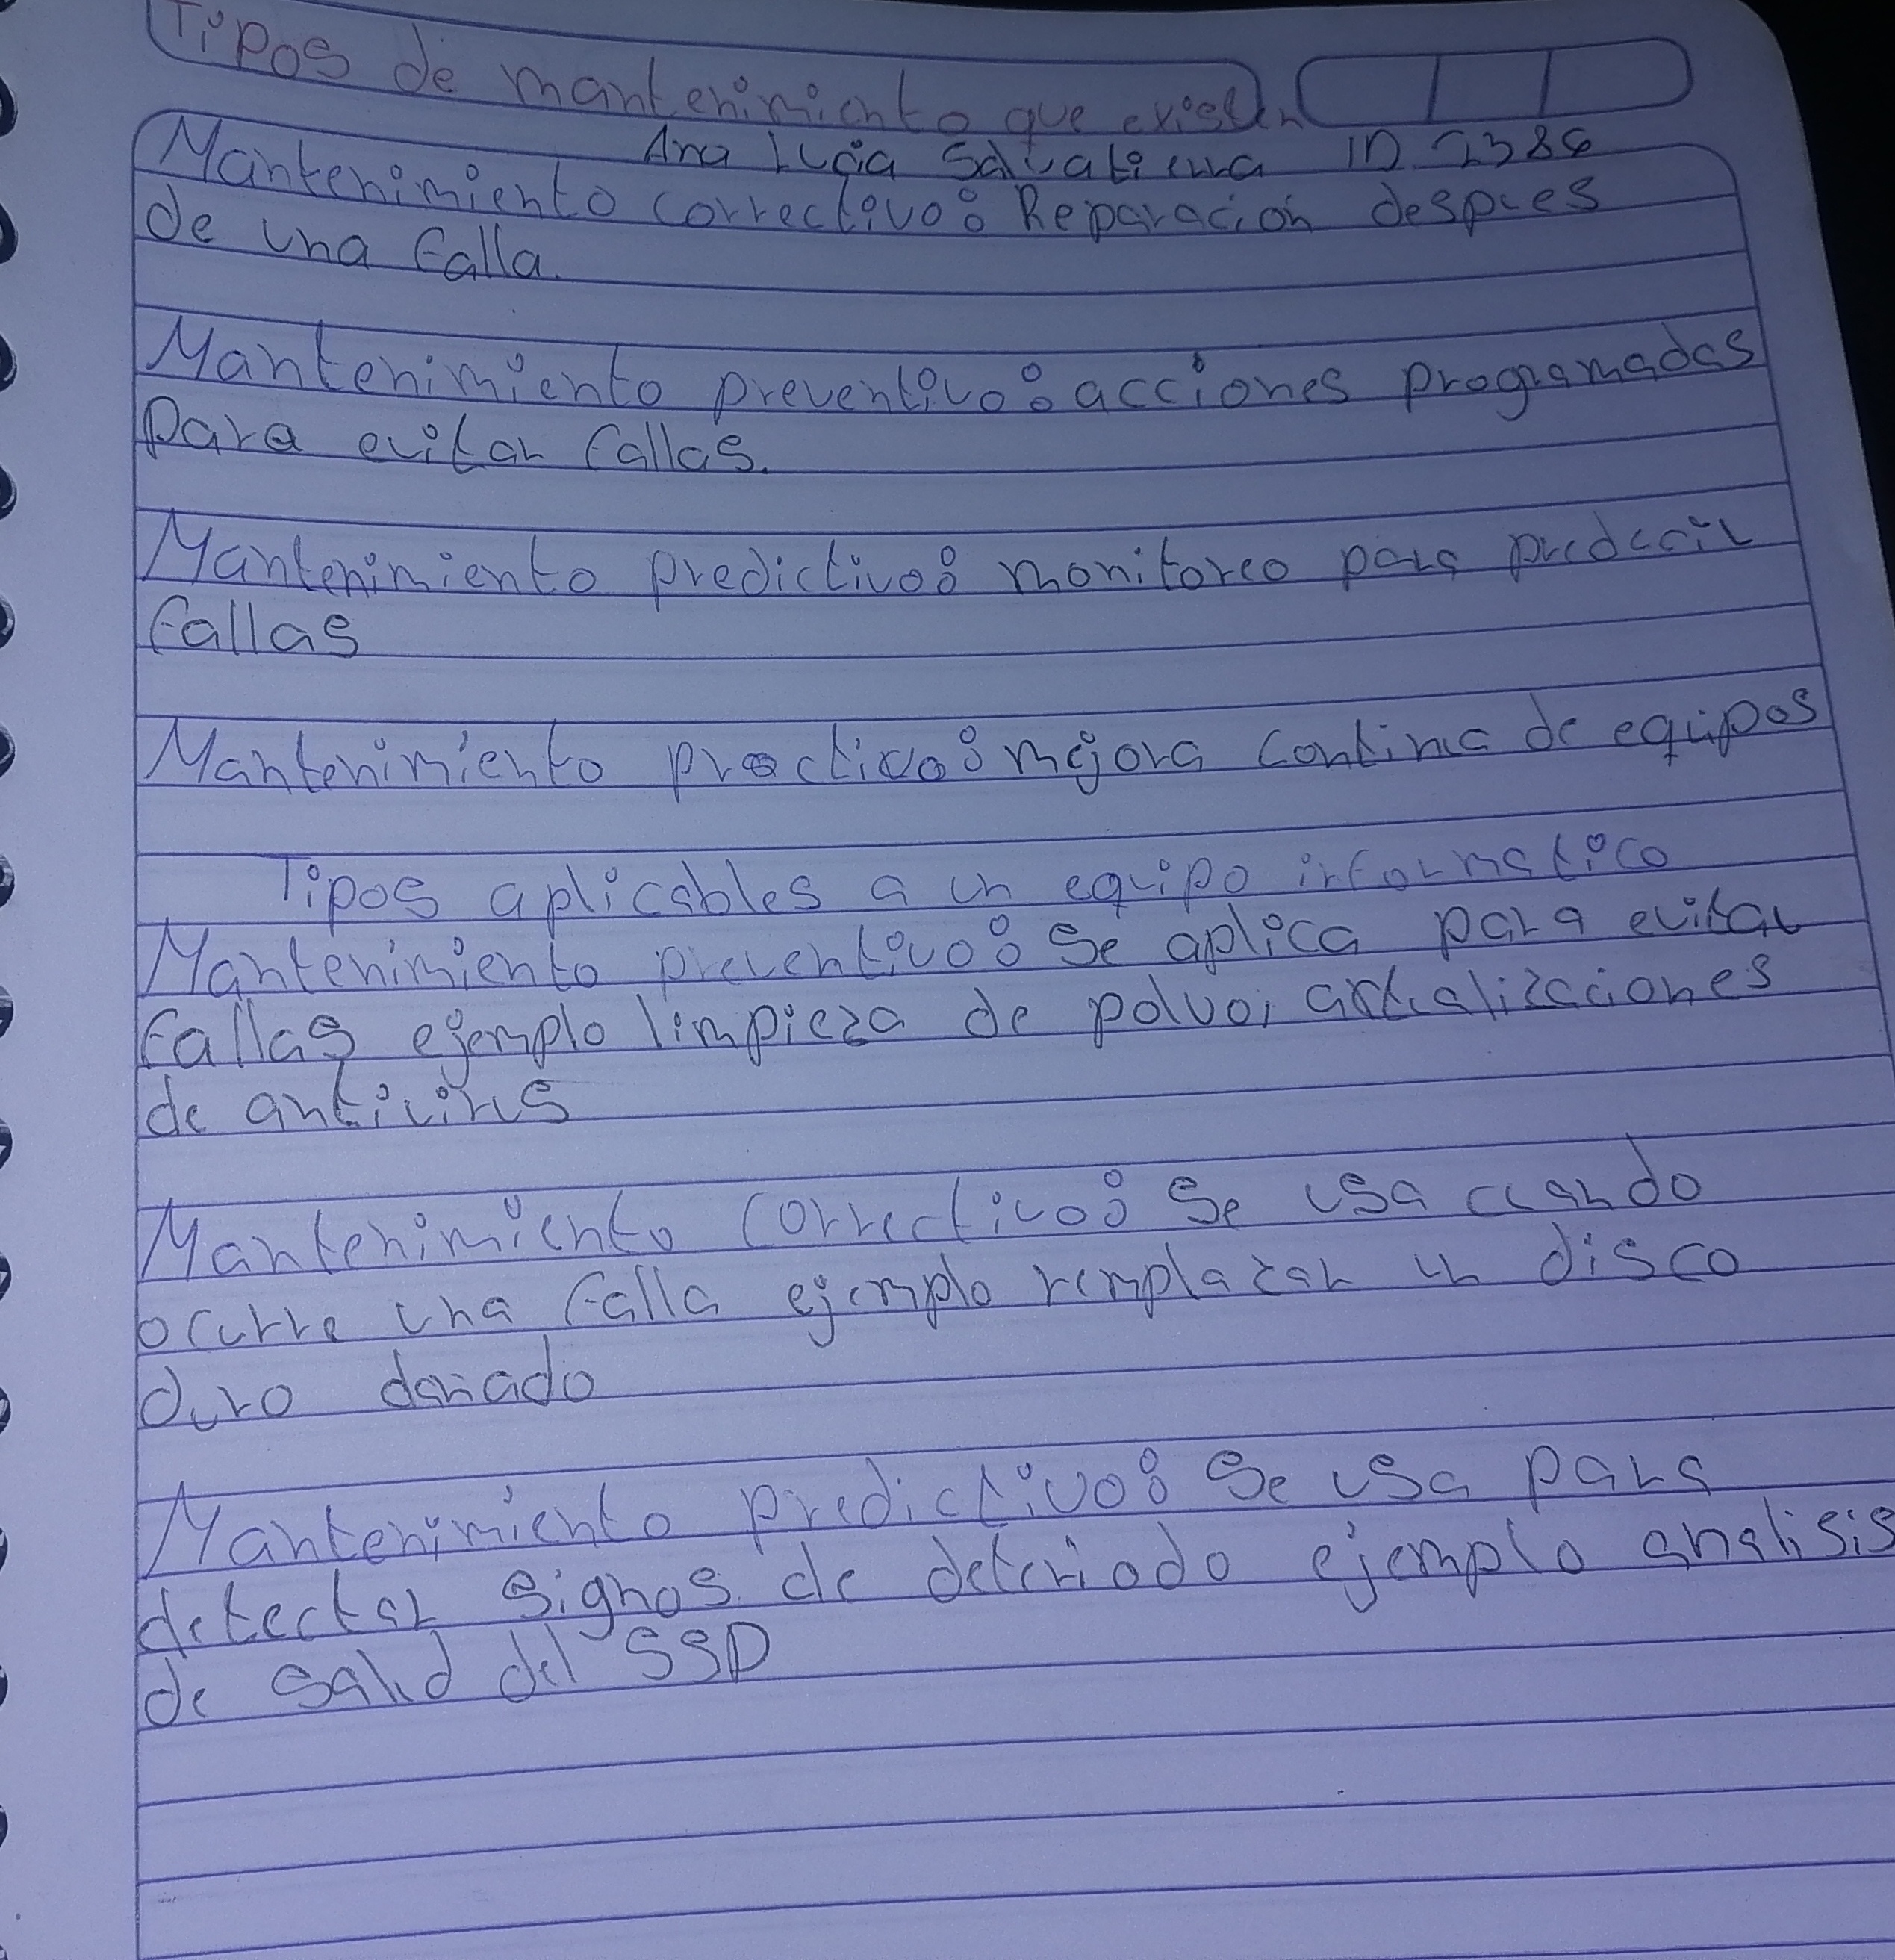 Tipos de mantenimiento que existen
Ana Lucia ID
Mantenimiento correctivo: Reparación despues
de una falla.
Mantenimiento preventivo: acciones programadas
para evitar fallas.
Mantenimiento predictivo: monitoreo para predecir
fallas
Mantenimiento proactivo: mejora continua de equipos
Tipos aplicables a un equipo informatico
Mantenimiento preventivo: Se aplica para evitar
fallas ejemplo limpieza de polvo, actualizaciones
de antivirus
Mantenimiento correctivo: Se usa cuando
ocurre una falla ejemplo remplazar un disco
duro dañado
Mantenimiento predictivo: Se usa para
detectar signos de deteriodo ejemplo analisis
de salud del SSD